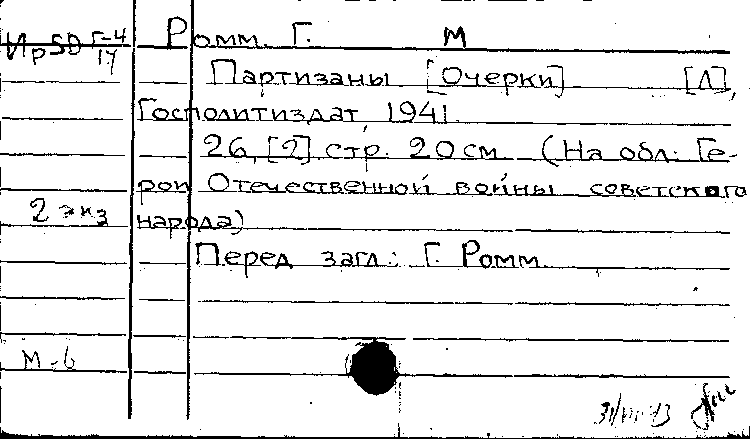 Ромм. Г. М
Партизаны [Очерки] [Л],
Госполитиздат, 1941.
26, [2] стр. 20 см (На обл: Ге-
рои Отечественной войны советского
2 экз народа)
Перед загл.: Г. Ромм
М-6